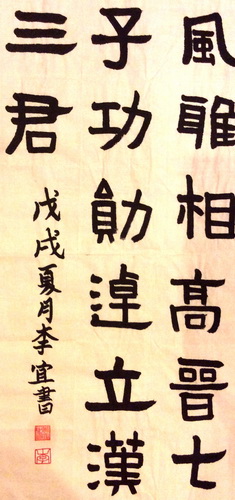 風雅相高晉七
子功勛逴立漢
三君
戊戌夏月李宜書